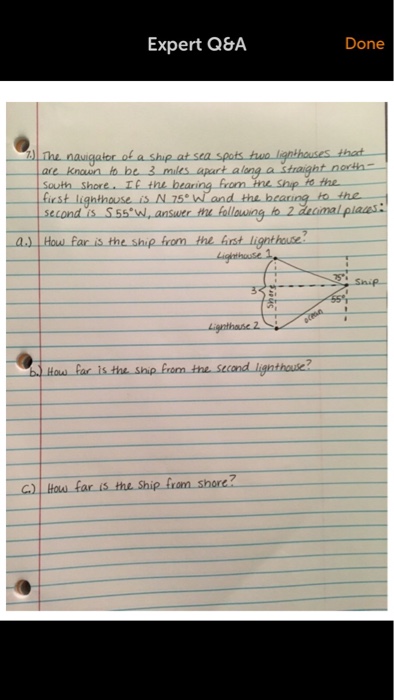 Expert Q&A
Done
7.) The navigator of a ship at sea spots two lighthouses that
are known to be 3 miles apart along a straight north-
south shore. If the bearing from the ship to the
first lighthouse is N 75° W and the bearing to the
second is S 55° W, answer the following to 2 decimal places:
a.) How far is the ship from the first lighthouse?
Lighthouse 1
75°
Ship
3
shore
55°
ocean
Lighthouse 2
b.) How far is the ship from the second lighthouse?
c.) How far is the ship from shore?